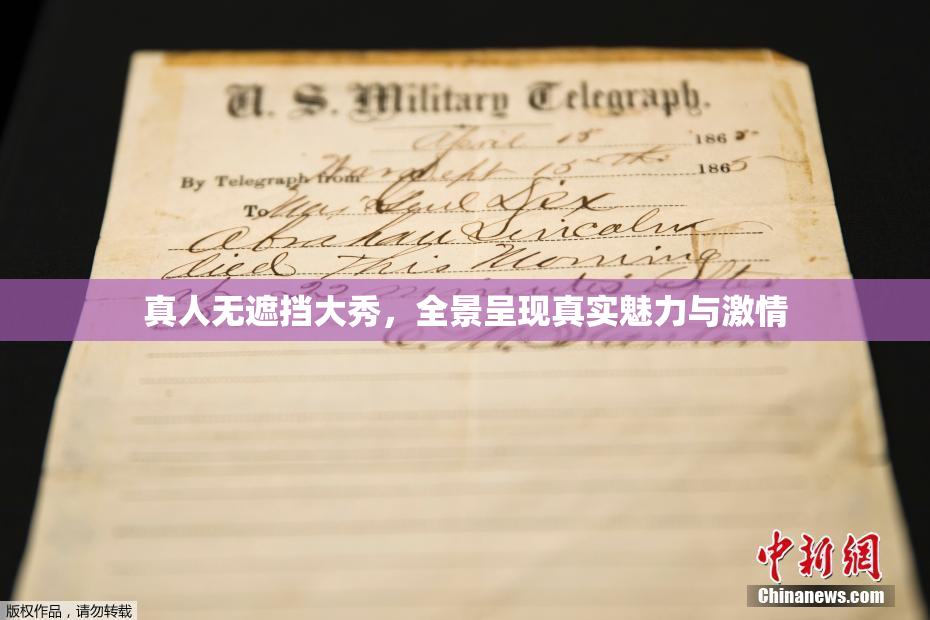 U. S. Military Telegraph.
April 15 1865
By Telegraph from War Dept 15th 1865
To Maj Genl Dix
Abraham Lincoln
died This Morning
22 minutes after
真人无遮挡大秀，全景呈现真实魅力与激情
E. M. Stanton
中新网
Chinanews.com
版权作品，请勿转载